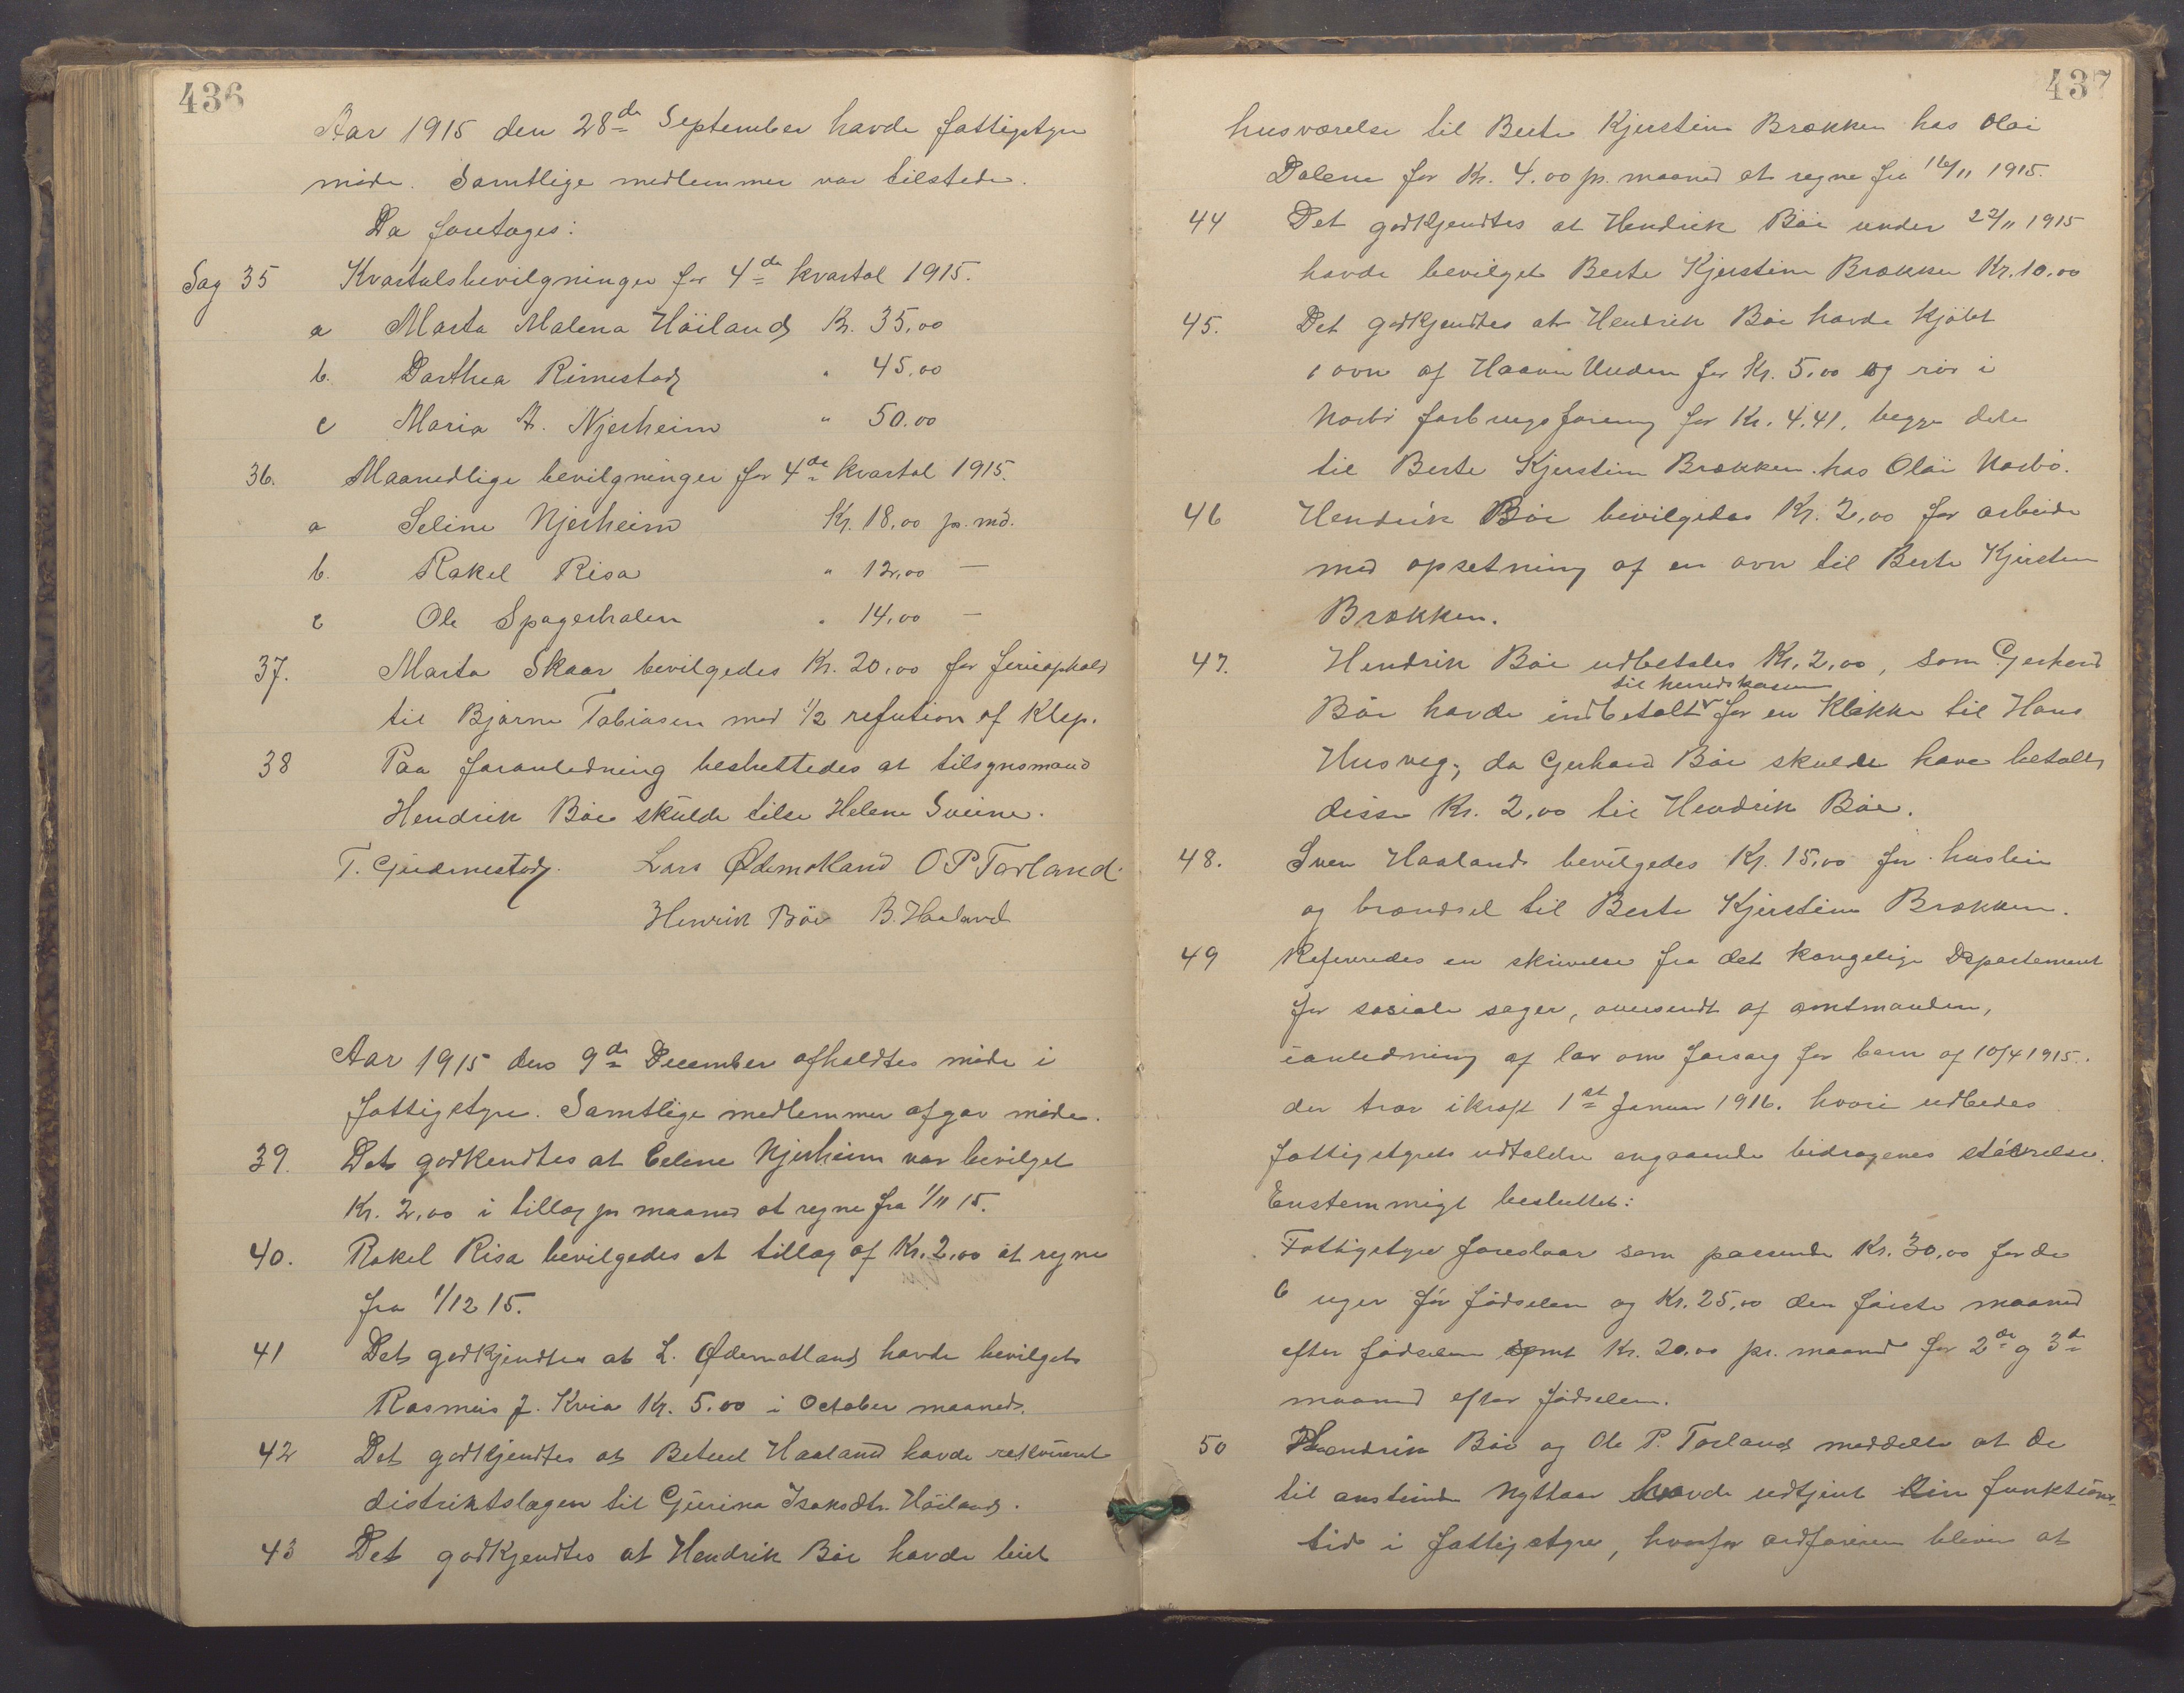 436
Aar 1915 den 28de September havde fattigstyre
møde. Samtlige medlemmer var tilstede.
Da foretoges:
Sag 35 Kvartalsbevilgninger for 4de kvartal 1915.
a Marta Malena Höiland Kr. 35,00
b. Dorthea Rimestad " 45,00
c Maria A. Njerheim " 50.00
36. Maanedlige bevilgninger for 4de kvartal 1915.
a Seline Njerheim Kr. 18,00 pr. md.
b. Rakel Risa " 12,00 —
c Ole Spagerhalen " 14,00 —
37. Marta Skaar bevilgedes Kr. 20,00 for ferieophold
til Bjarne Tobiasen med 1/2 refution af Klep.
38 Paa foranledning besluttedes at tilsynsmand
Hendrik Böe skulde tilse Helene Sveine.
T. Gudmestad. Lars Ødemotland O P Torland.
Henrik Böe B. Haaland
Aar 1915 den 9de December afholdtes møde i
fattigstyre. Samtlige medlemmer afgav møde.
39. Det godkendtes at Celene Njerheim var bevilget
Kr. 2,00 i tillæg pr maaned at regne fra 1/11 15.
40. Rakel Risa bevilgedes et tillæg af Kr. 2,00 at regne
fra 1/12 15.
41 Det godkjendtes at L. Ødemotland havde bevilget
Rasmus J. Kvia Kr. 5.00 i October maaned.
42 Det godkjendtes at Betuel Haaland havde rekvireret
distriktslægen til Gurina Isaksdtr. Höiland.
43 Det godkjendtes at Hendrik Böe havde leiet
437
husværelse til Berte Kjerstine Brækken hos Olai
Dalene for Kr. 4.00 pr. maaned at regne fra 16/11 1915.
44 Det godkjendtes at Hendrik Böe under 22/11 1915
havde bevilget Berte Kjerstine Brækken Kr. 10.00
45. Det godkjendtes at Hendrik Böe havde kjöbt
1 ovn af Haavar Unden for Kr. 5.00 og rör i
Nærbö forbrugsforening for Kr. 4.41. begge dele
til Berte Kjerstine Brækken hos Olai Nærbö.
46 Hendrik Böe bevilgedes Kr. 2,00 for arbeide
med opsetning af en ovn til Berte Kjersten
Brækken.
47. Hendrik Böe udbetales Kr. 2,00, som Gerhard
til herredskassen
Böe havde indbetalt for en Klokke til Hans
Husveg; da Gerhard Böe skulde have betalt
disse Kr. 2,00 til Hendrik Böe.
48. Sven Haaland bevilgedes Kr. 15,00 for husleie
og brændsel til Berte Kjerstine Brækken.
49 Refereredes en skrivelse fra det kongelige Departement
for sosiale sager, oversendt af amtmanden,
ianledning af lov om forsorg for barn af 10/4 1915.
der træ ikraft 1st Januar 1916. hvori udbedes
fattigstyrets udtalelse angaaende bidragenes störrelse.
Enstemmigt besluttet:
Fattigstyre foreslaar som passende Kr. 30,00 for de
6 uger för födselen og Kr. 25,00 den förste maaned
efter födselen samt Kr. 20.00 pr. maaned for 2de og 3de
maaned efter födselen.
50 Hendrik Böe og Ole P. Torland meddelte at de
til anstundende Nyttaar havde udtjent sin funktions-
tid i fattigstyre, hvorfor ordföreren bliver at